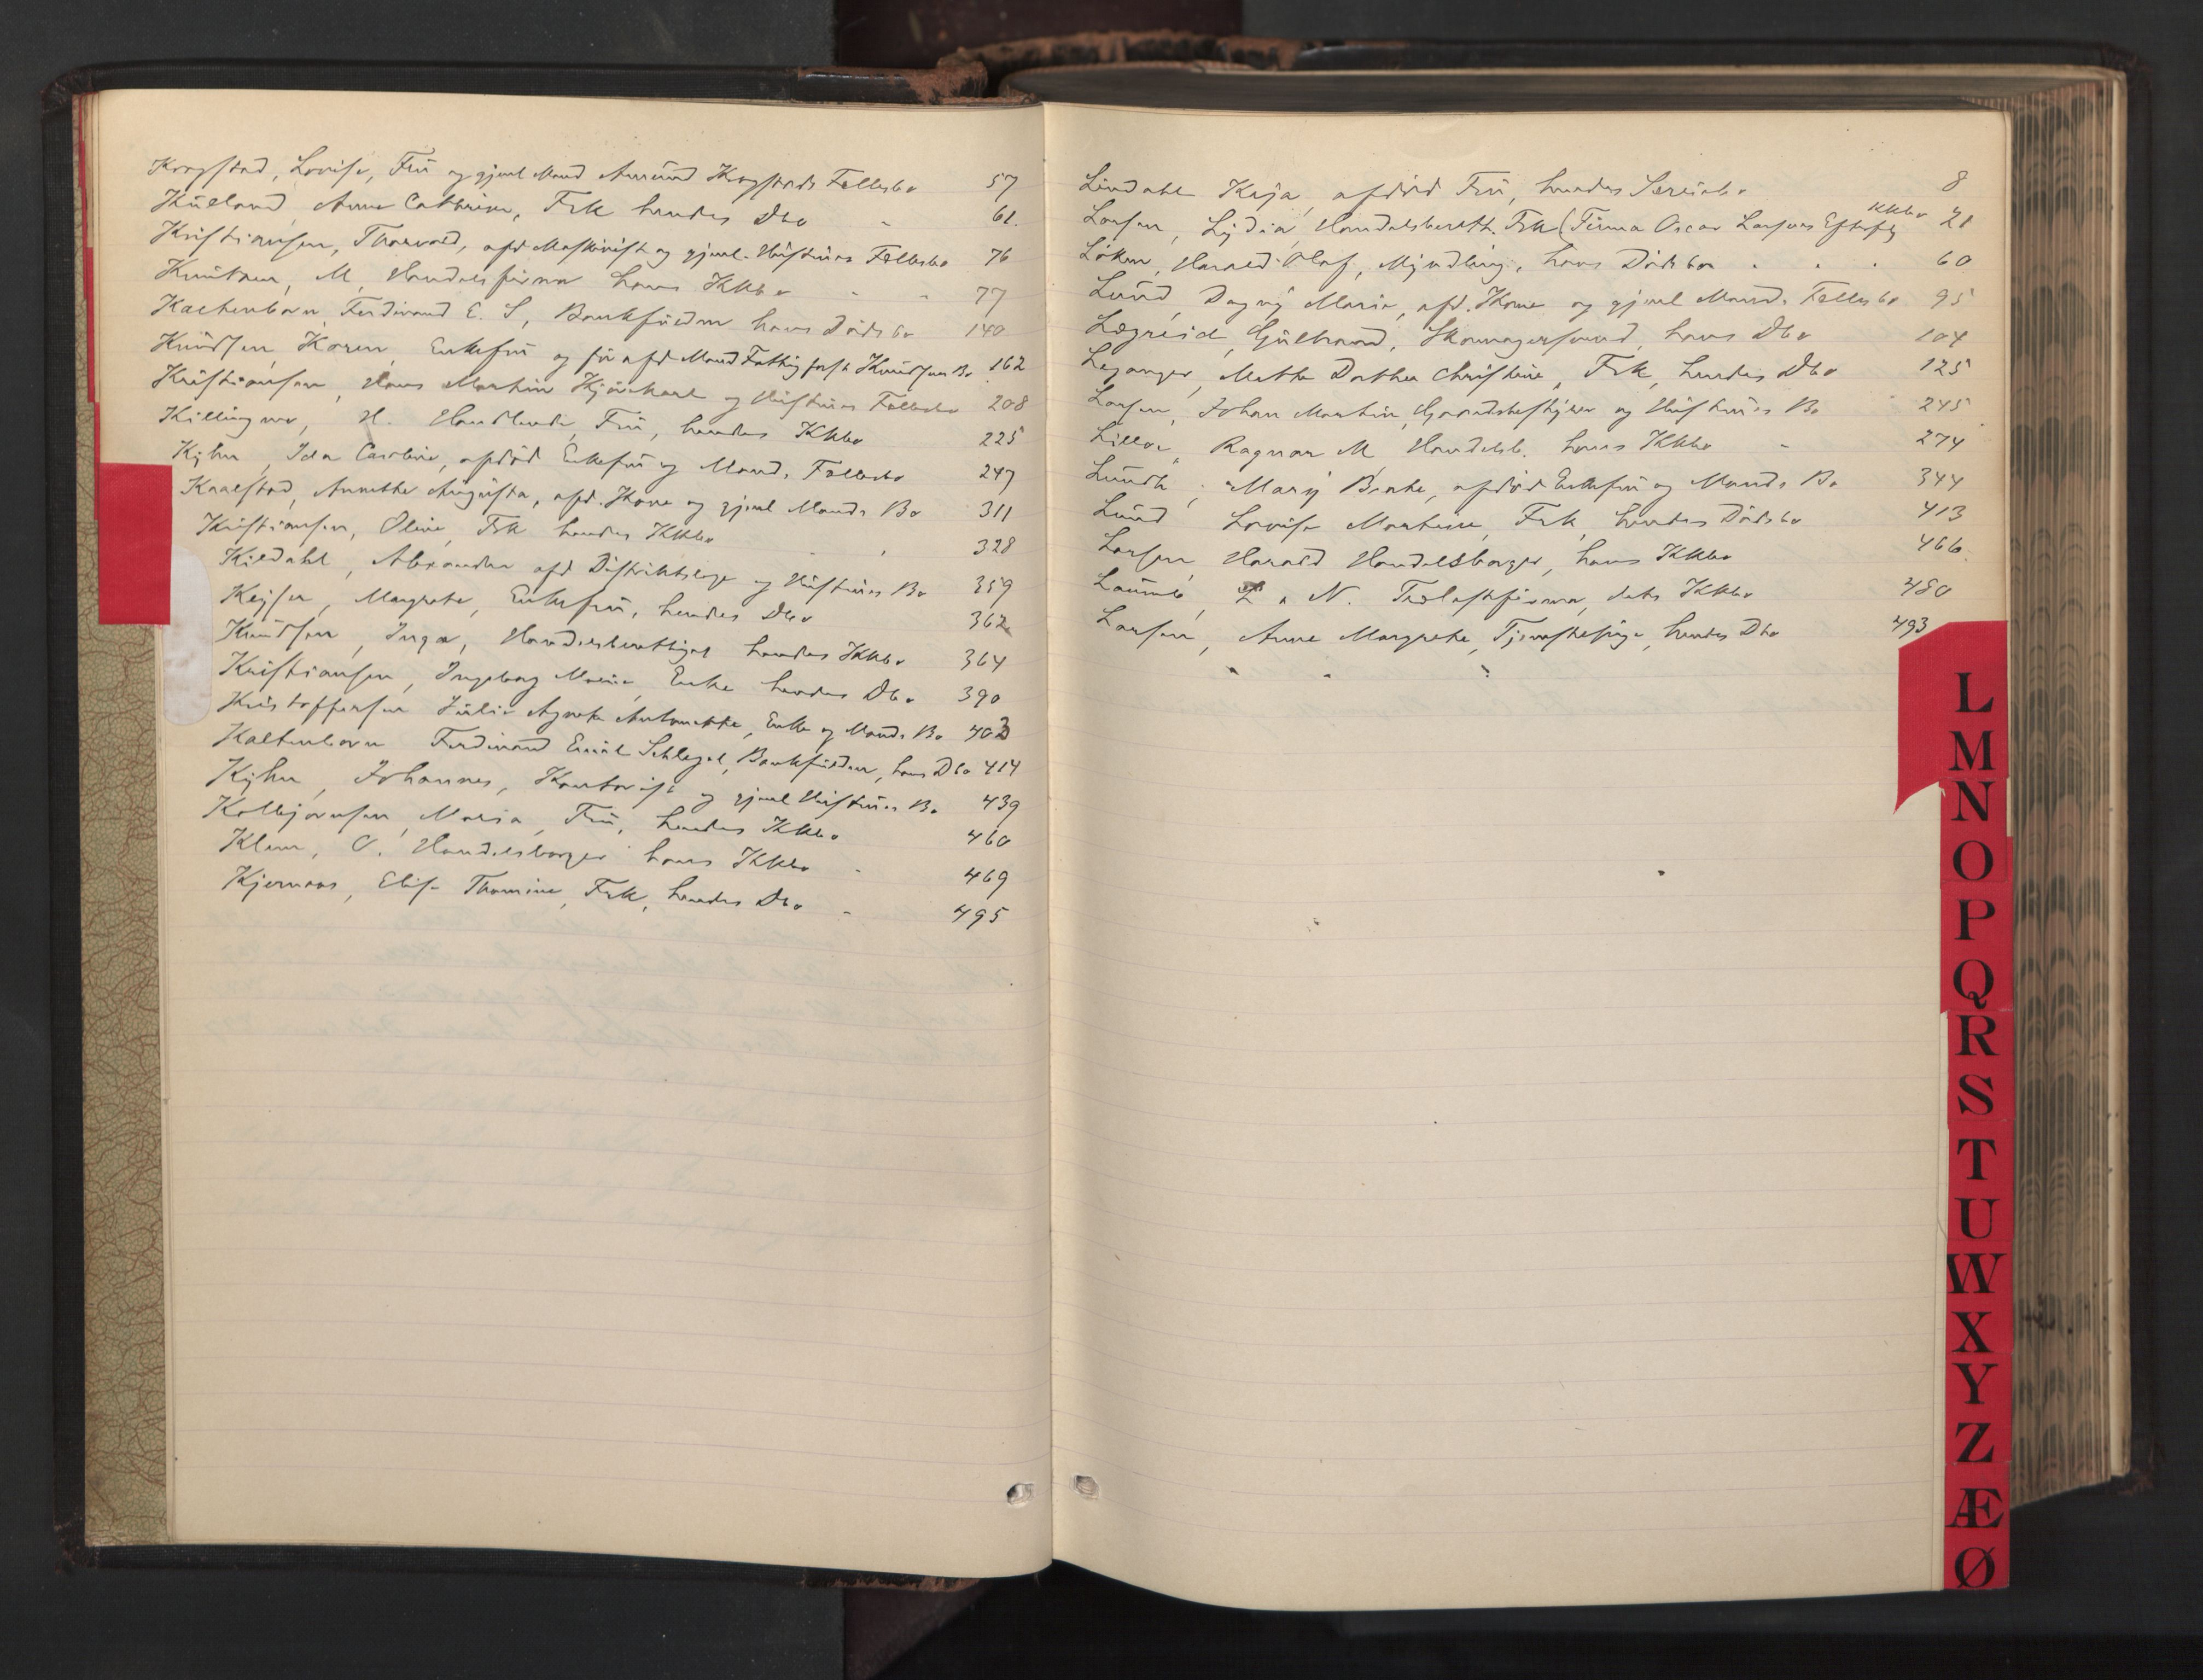 Krogstad, Lovise, Frü og gjenl Mand Amünd Krogstads Fællesbo 57
Külland, Anne Cathrine, Frk hendes Dbo 61.
Kristiansen, Thorvald, afd. Maskinist og gjenl. Hüstrües Fællesbo 76
Knütsen, M, Handelsfirma hans Kkbo 77
Kaltenborn, Ferdinand E. S, Bankfüldm hans Dödsbo 140
Knüdsen, Karen, Enkefrü og før afd Mand Fattigforst. Knüdsen Bo 162
Kristiansen, Hans Martin Kjörekarl og Hüstrües Fællesbo 208
Killingmo, H. Handlende Frü, hendes Kkbo 225
Kyhn, Ida Caroline, afdöd Enkefrü og Mands Fællesbo 247
Kaalstad, Annette Aügüsta, afd. Kone og gjenl Mands Bo 311
Kristiansen, Oline, Frk hendes Kkbo 328
Kieldahl, Alexander afd Distriktslæge og Hüstrües Bo 359
Keyser, Margrete, Enkefrü, hendes Dbo 362
Knüdsen, Inga, Handelsberettiget hendes Kkbo 364
Kristiansen, Ingeborg Marie, Enke hendes Dbo 390
Kristoffersen Jülie Agnete Antonette, Enke og Mands Bo 403
Kaltenborn Ferdinand Emil Schlegel, Bankfüldm, hans Dbo 414
Kyhn, Johannes, Kontorist og gjenl Hüstrües Bo 439
Kolbjörnsen, Maria, Frü, hendes Kkbo 460
Klem, O. Handelsborger hans Kkbo 469
Kjernaas, Elise Thomine, Frk, hendes Dbo 495
Lindahl Kaja, afdöd Frü, hendes Særeiebo 8
Larsen, Lydia, Handelsberett. Frk (Firma Oscar Larsens Efterflg Kkbo 21
Löken, Harald Olaf, Myndling, hans Dödsbo 60
Lünd, Dagny Marie, afd. Kone og gjenl Mands Fællesbo 95
Lægreid, Gülbrand, Skomagersvend, hans Dbo 104
Leganger, Mette Dorthea Christine, Frk, hendes Dbo 125
Larsen, Johan Martin, Gaardsbestyrer og Hüstrües Bo 245
Lilloe, Ragnar M Handelsb. hans Kkbo 274
Lündh, Mary Beate, afdöd Enkefrü og Mands Bo 344
Lünd Lovise Martine, Frk, hendes Dödsbo 413
Larsen, Harald Handelsborger, hans Kkbo 466
Laümb, L. N. Trælastfirma, dets Kkbo 480
Larsen, Anne Margrete, Tjenestepige, hendes Dbo 493
L
M
N
O
P
Q
R
S
T
U
W
X
Y
Z
Æ
Ø